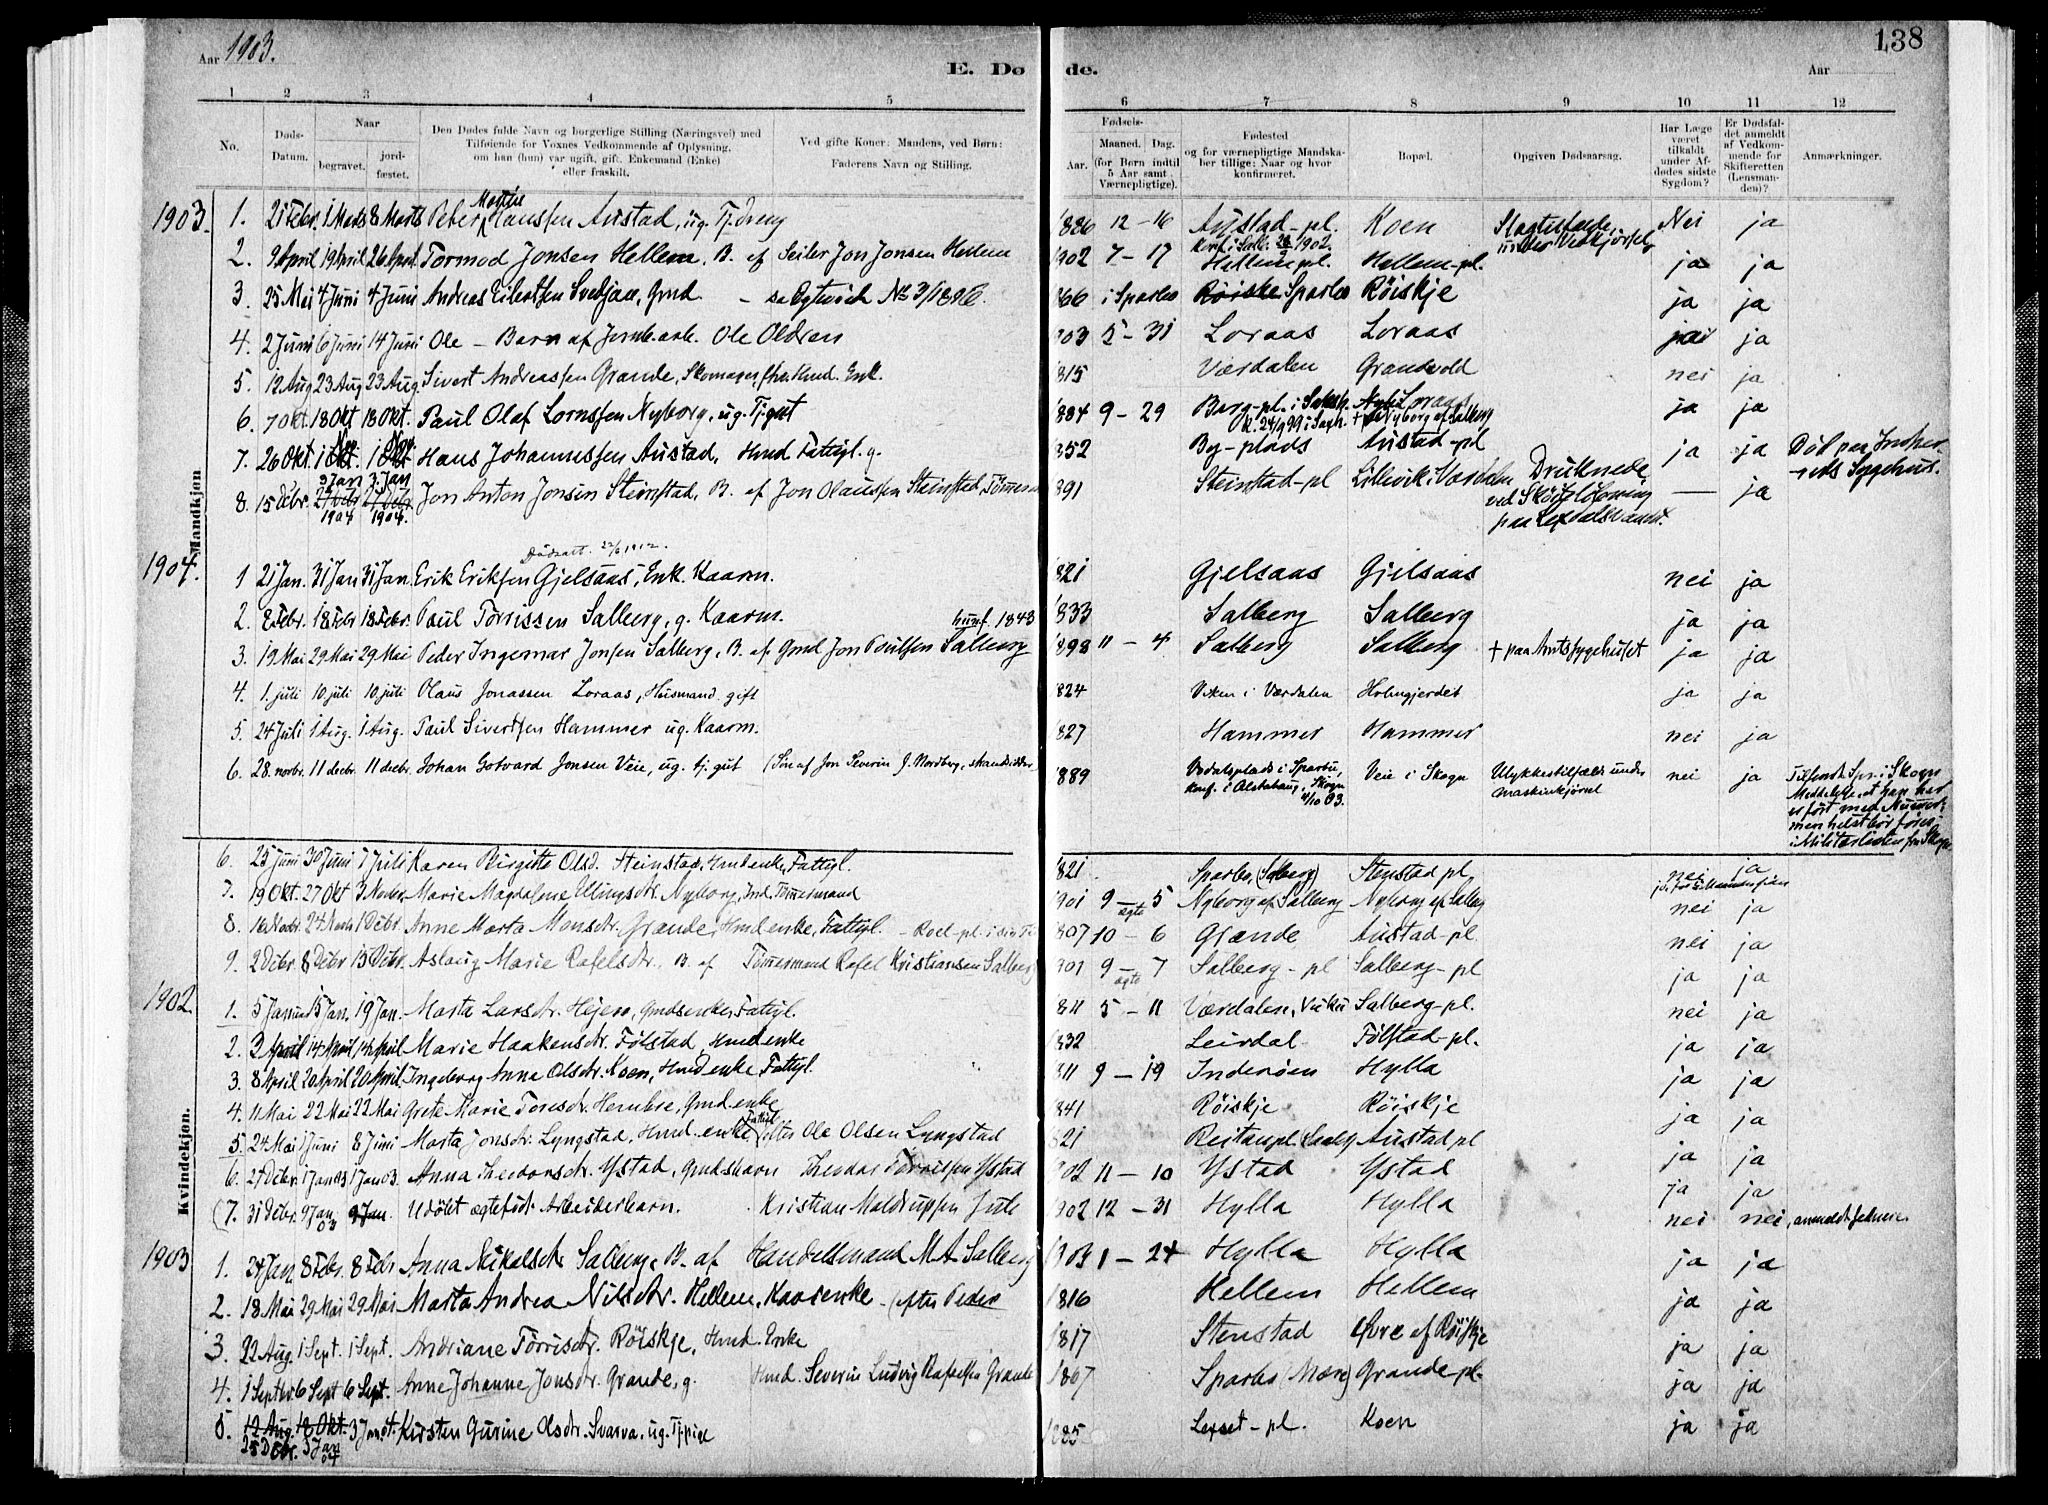 Aar 1903.
E. Dø de.
Aar
138
1 2 3 4 5 6 7 8 9 10 11 12
No.
Døds-Datum.
Naar
begravet.
jord-fæstet.
Den Dødes fulde Navn og borgerlige Stilling (Næringsvei) med
Tilføiende for Voxnes Vedkommende af Oplysning,
om han (hun) var ugift, gift, Enkemand (Enke)
eller fraskilt.
Ved gifte Koner: Mandens, ved Børn:
Faderens Navn og Stilling.
Fødsels-
Aar. Maaned. Dag.
(for Børn indtil
5 Aar samt
Værnepligtige).
Fødested
og for værnepligtige Mandska-
ber tillige: Naar og hvor
konfirmeret.
Bopæl.
Opgiven Dødsaarsag.
Har Læge
været
tilkaldt
under Af-
dødes sidste
Sygdom?
Er Dødsfal-
det anmeldt
af Vedkom-
mende for
Skifteretten
(Lensman-
den)?
Anmærkninger.
Mandkjøn
1903. 1. 21 Febr. 1 Marts 8 Marts Peter Hanssen Austad, ug. Tj. dreng 1886 12-16 Austad-pl. Koen Nei ja
Konf. i Salb. 1902.
2. 9 April 19 April 26 April Tormod Jonsen Hellem, B. af Seiler Jon Jonsen Hellem 1902 7-17 Hellem pl. Hellem-pl. ja ja
3. 25 Mai 4 Juni 4 Juni Andreas Eilertsen Svedjan, Gmd. No 3/1896 866 i Sparbo Røiske Sparbo Røiskje ja ja
4. 2 Juni 6 Juni 14 Juni Ole - Barn af Jernb.arb. Ole Oldren 903 5-31 Loraas Loraas ja
5. 12 Aug 23 Aug 23 Aug. Sivert Andreassen Grande, Skomager, Enk. 815 Værdalen Grandvold nei ja
6. 7 Okt. 18 Okt 18 Okt. Paul Olaf Lornssen Nyborg, ug. Tj. gut 884 9-29 Berg-pl. i Loraas ja ja
7. 26 Okt. 1 Nov. 1 Nov. Hans Johannessen Austad, Hmd Fattigl. g. 852 By-plads Austad-pl ja ja Død paa Indher-
reds Sygehus.
8. 15 Debr. 3 Jan 1904 3 Jan 1904. Jon Anton Jonsen Steinstad, B. af Jon Olaussen Steinstad, Tømmerm 891 Steinstad-pl Lillevik, Værdalen Druknede
ved Skøiteløbning
paa - ja
1904. Dødsatt. 22/6 1912.
1 21 Jan. 31 Jan 31 Jan. Erik Eriksen Gjelsaas, Enk. Kaarm. 821 Gjelsaas Gjelsaas nei ja
2. 8 Febr. 18 Febr 18 Febr. Paul Tørrissen Salberg, g. Kaarm. 833 Salberg Salberg ja ja
3. 19 Mai 29 Mai 29 Mai Peder Ingemar Jonsen Salberg, B. af Gmd Jon Poulsen Salberg 1898 11-4 Salberg Salberg + paa Amtssygehuset ja ja
4. 1. juli 10. juli 10. juli Olaus Jonassen Loraas, Husmand, gift 824 Viken i Værdalen Holmgjerdet ja ja
5. 24 Juli 1 Aug. 1 Aug. Paul Sivertsen Hammer ug. Kaarm. 827 Hammer Hammer nei ja
6. 28. novbr. 11 decbr. 11 decbr. Johan Gotvard Jonsen Veie, ug. tj. gut (Søn af Jon Severin J. Nordberg, strandsidder) 889 i Sparbu, Veie i Skogn Ulykkestilfælde under
maskinkjørsel nei ja
konf. i Alstahaug, Skogn
4/10 03.
Kvindekjøn.
6. 25 Juni 30 Juni 7 Juli Karen Birgitte Olsd. Steinstad, Hmdenke, Fattigl. 821 Sparbu (Salberg) Stenstad pl nei ja
7. 19 Okt. 27 Okt 3 Novbr. Marie Magdalene Nyborg, Ind. Tømmermand 901 9-5 ægte Nyborg af Salberg Nyborg af Salberg nei ja
8. 16 Novbr. 24 Novbr 1 Debr. Anne Marta Monsdtr. Grande, Hmd enke, Fattigl. 807 10-6 Grande Austad-pl. nei ja
9. 2 Debr. 8 Debr 15 Debr. Aslaug Marie Rafelsdtr. B. af Tømmermand Rafel Kristiansen Salberg 901 9-7 ægte Salberg-pl Salberg-pl ja ja
1902. 1. 5 Januar 15 Jan. 19 Jan. Marta Larsdtr. Hejem, Gmdsenke, Fattigl. 811 5-11 Værdalen, Vuku Salberg-pl. nei ja
2. 3 April 14 April 14 April Marie Haakensdtr. Følstad, Hmd enke 832 Leirdal Følstad-pl. ja ja
3. 8 April 20 April 20 April. Ingeborg Anna Olsdtr. Koen, Hmd enke Fattigl. 811 9-19 Inderøen Hylla ja ja
4. 11 Mai 22 Mai 22 Mai Grete Marie Toresdtr. Hembre, Gmd enke 841 Røiskje Røiskje ja ja
5. 24 Mai 1 Juni 8 Juni Marta Jonsdtr. Lyngstad, Hmd. enke Fattigl efter Ole Olsen Lyngstad 821 Reitan pl. Austad pl ja ja
6. 27 Debr. 1 Jan 03 1 Jan 03. Anna Theodorsdtr. Ystad, Gmdsbarn Theodor Tørrissen Ystad 902 11-10 Ystad Ystad ja ja
(7. 31 Debr. 9 Jan 03 9 Jan. Udøbt ægtefødt Arbeiderbarn. Kristian Maldrupsen Jule 902 12-31 Hylla Hylla nei nei, anmeldt senere.
1903 1. 24 Jan 8 Febr. 8 Febr Anna Nikelsdtr Salberg, B. af Handelsmand M.A. Salberg 1903 1-24 Hylla Hylla ja ja
2. 18 Mai 29 Mai 29 Mai Marta Andrea Nilsdtr. Hellem, Kaarenke - (efter Peder 1816 Hellem Hellem ja ja
3. 22 Aug. 1 Sept. 1 Sept. Andriane Tørrisdtr. Røiskje, Hmd. Enke 1817 Stenstad Øvre af Røiskje ja ja
4. 1 Septbr. 6 Sept 6 Sept. Anne Johanne Jonsdtr. Grande, g. Hmd. Severin Ludvig Rafaelsen Grande 1867 Sparbu (Mære) Grande-pl. ja ja
5. 12 Aug. 18 Okt. 3 Jan. Kirsten Gurine Olsdtr. Svarva, ug. Tj. pige 1885 Lexset-pl. Koen ja ja
25 Debr. 3 Jan 04